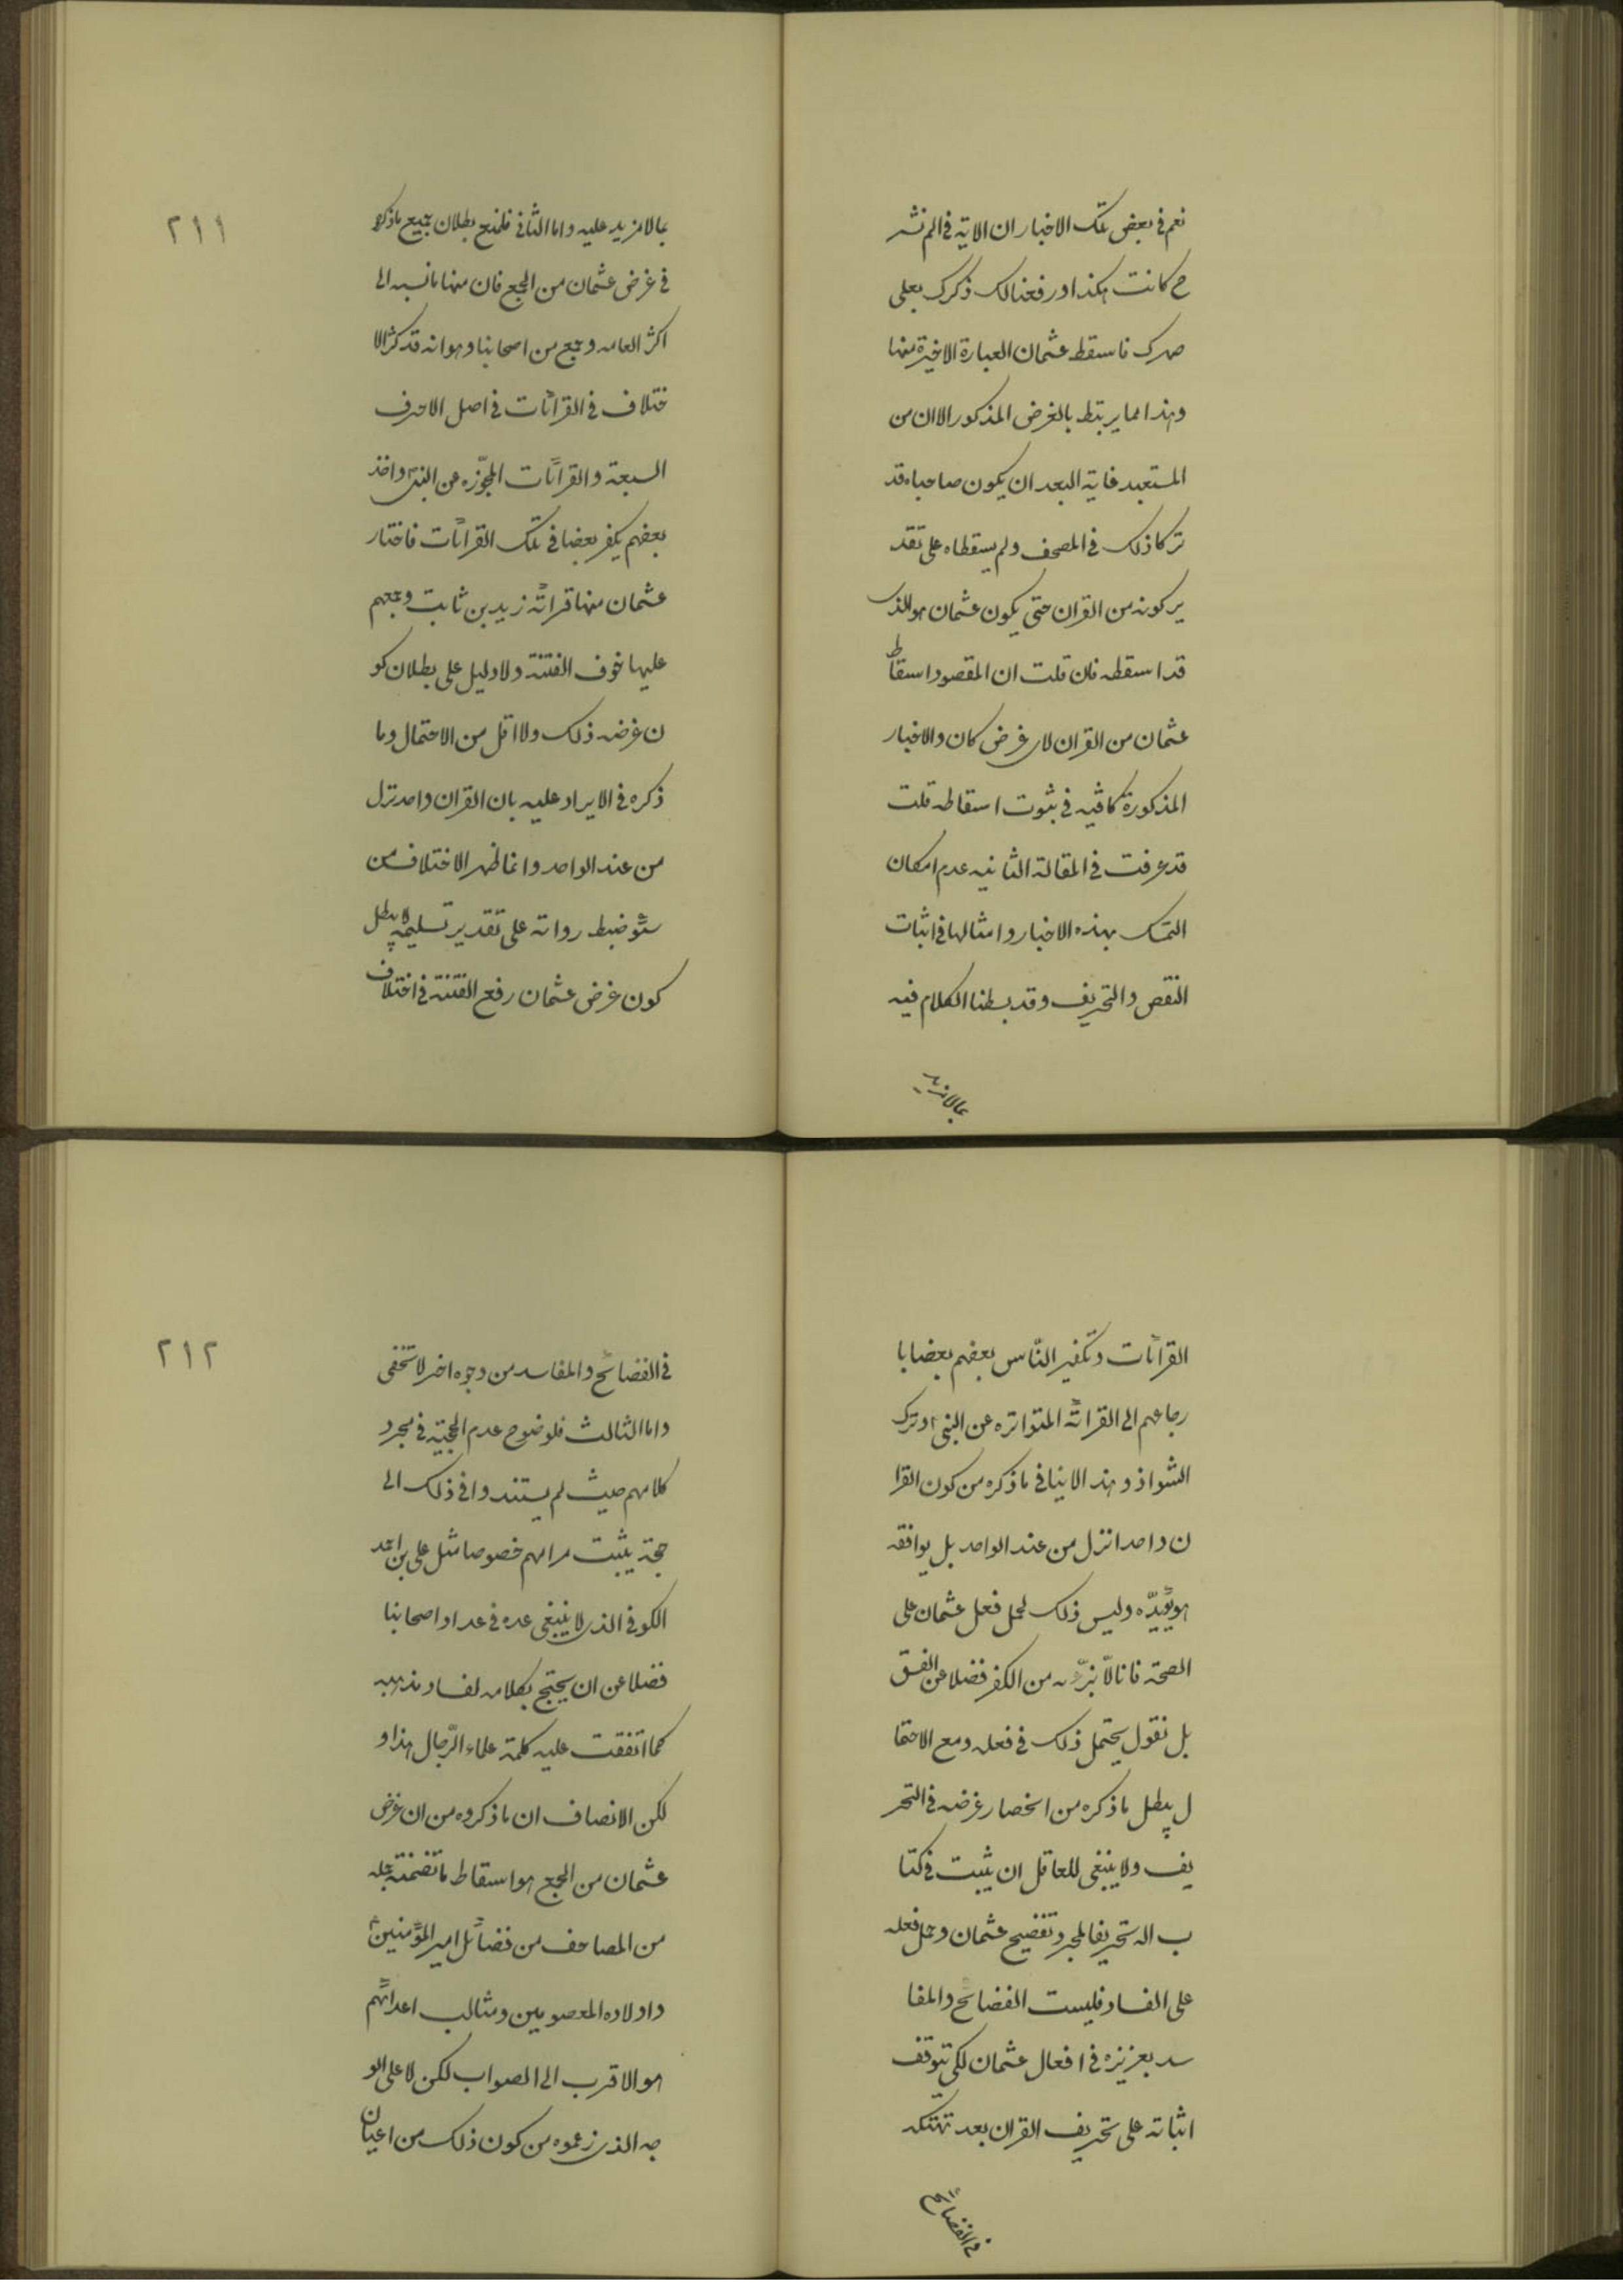 نعم فى بعض تلك الاخبار ان الاية فى الم نشر
ح كانت هكذا ورفعنا لك ذكرك بعلى
صهرك فاسقط عثمان العبارة الاخيرة منها
وهذا مما يرتبط بالغرض المذكور الا ان من
المستعبد غاية البعد ان يكون صاحباه قد
تركا ذلك فى المصحف ولم يسقطاه على تقد
ير كونه من القران حتى يكون عثمان هو الذى
قد اسقطه فان قلت ان المقصود اسقاط
عثمان من القران لاى غرض كان والاخبار
المذكورة كافيه فى ثبوت اسقاطه قلت
قد عرفت فى المقالة الثانيه عدم امكان
التمسك بهذه الاخبار وامثالها فى اثبات
النقص والتحريف وقد بسطنا الكلام فيه
بما لا مزيد
٢١١
بما لا مزيد عليه واما الثانى فلمنع بطلان جميع ما ذكره
فى غرض عثمان من الجمع فان منها ما نسبه الى
اكثر العامه وجمع من اصحابنا وهو انه قد كثر الا
ختلاف فى القرائات فى اصل الاحرف
السبعة والقرائات المجوّزه عن النبى واخذ
بعضهم يكفر بعضا فى تلك القرائات فاختار
عثمان منها قرائة زيد بن ثابت وجمعهم
عليها خوف الفتنة ولا دليل على بطلان كو
ن غرضه ذلك ولا اقل من الاحتمال وما
ذكره فى الايراد عليه بان القران واحد نزل
من عند الواحد وانما ظهر الاختلاف من
سوء ضبط رواته على تقدير تسليمه لا يبطل
كون غرض عثمان رفع الفتنة فى اختلاف
القرائات وتكفير النّاس بعضهم بعضا با
رجاعهم الى القرائة المتواتره عن النبى وترك
الشواذ وهذا لا ينافى ما ذكره من كون القرا
ن واحدا نزل من عند الواحد بل يوافقه
ويؤيّده وليس ذلك لحمل فعل عثمان على
الصحة فانا لا نبرّءه من الكفر فضلا عن الفسق
بل نقول يحتمل ذلك فى فعله ومع الاحتما
ل يبطل ما ذكره من انحصار غرضه فى التحر
يف ولا ينبغى للعاقل ان يثبت فى كتا
ب الله تحريفا لمجرد تفضيح عثمان وحمل فعله
على الفساد فليست الفضائح والمفا
سد بعزيزه فى افعال عثمان لكى تتوقف
اثباته على تحريف القران بعد تهتكه
فى الفضائح
٢١٢
فى الفضائح والمفاسد من وجوه اخر لا تخفى
واما الثالث فلوضوح عدم الحجية فى مجرد
كلامهم حيث لم يستندوا فى ذلك الى
حجة يثبت مرامهم خصوصا مثل على بن احمد
الكوفى الذى لا ينبغى عده فى عداد اصحابنا
فضلا عن ان يحتج بكلامه لفساد مذهبه
كما اتفقت عليه كلمة علماء الرّجال هذا و
لكن الانصاف ان ما ذكروه من ان غرض
عثمان من الجمع هو اسقاط ما تضمنته جمله
من المصاحف من فضائل امير المؤمنين
واولاده المعصومين ومثالب اعدائهم
هو الاقرب الى الصواب لكن لا على الو
جه الذى زعموه من كون ذلك من اعيان